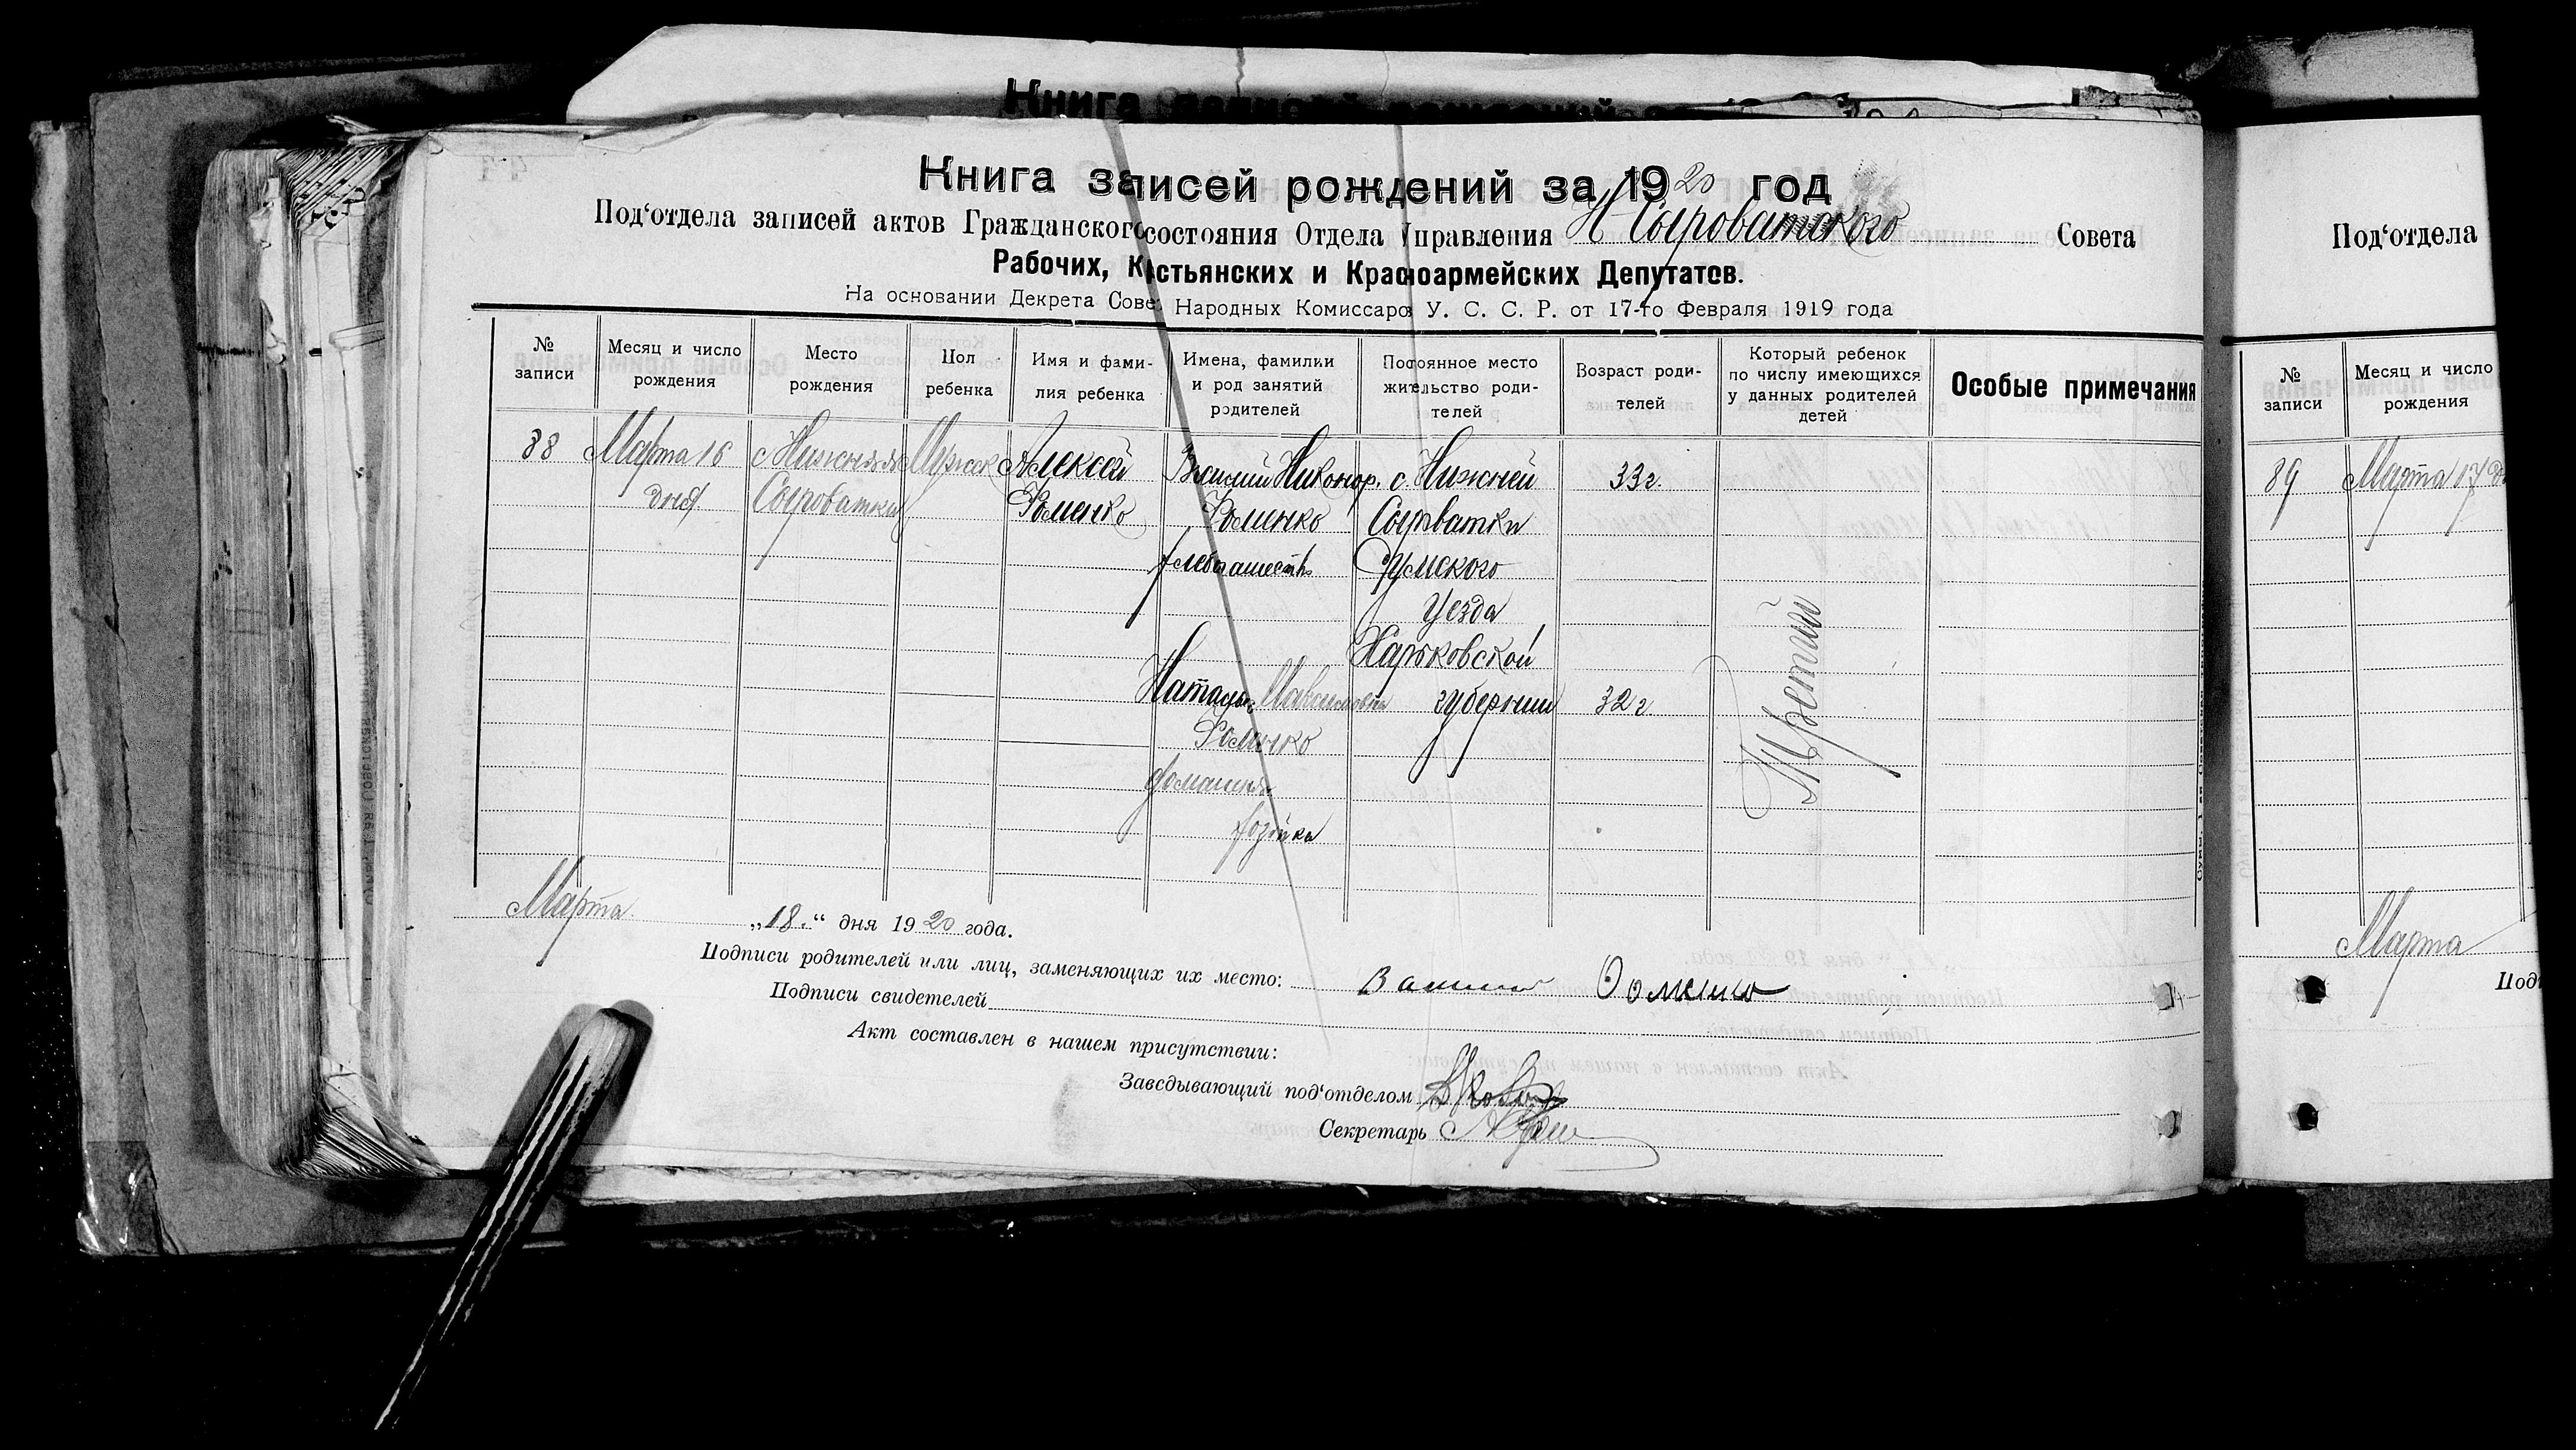 Книга записей рождений за 1920 год
Под'отдела записей актов Гражданского состояния Отдела Управления Н Сыроватского Совета
Рабочих, Крестьянских и Красноармейских Депутатов.
На основании Декрета Сове. Народных Комиссаров У. С. С. Р. от 17-го Февраля 1919 года
№ записи
Месяц и число рождения
Место рождения
Пол ребенка
Имя и фамилия ребенка
Имена, фамилии и род занятий родителей
Постоянное место жительство родителей
Возраст родителей
Который ребенок по числу имеющихся у данных родителей детей
Особые примечания
88
Марта 16
дня
с Нижняя
Сыроватка
Мужск
Алексей
Фоменко
Василий Никонор.
Фоменко
хлебопашеств
Наталья Максимовна
Фоменко
домашняя
хозяйка
с. Нижней
Сыроватки
Сумского
Уезда
Харьковской
губернии
33 г.
32 г
Третий
Марта „18.“ дня 1920 года.
Подписи родителей или лиц, заменяющих их место: Васили Фоменко
Подписи свидетелей
Акт составлен в нашем присутствии:
Заведывающий под'отделом
Секретарь
Под'отдела
№ записи
Месяц и число рождения
89
Марта 17
Марта
Под